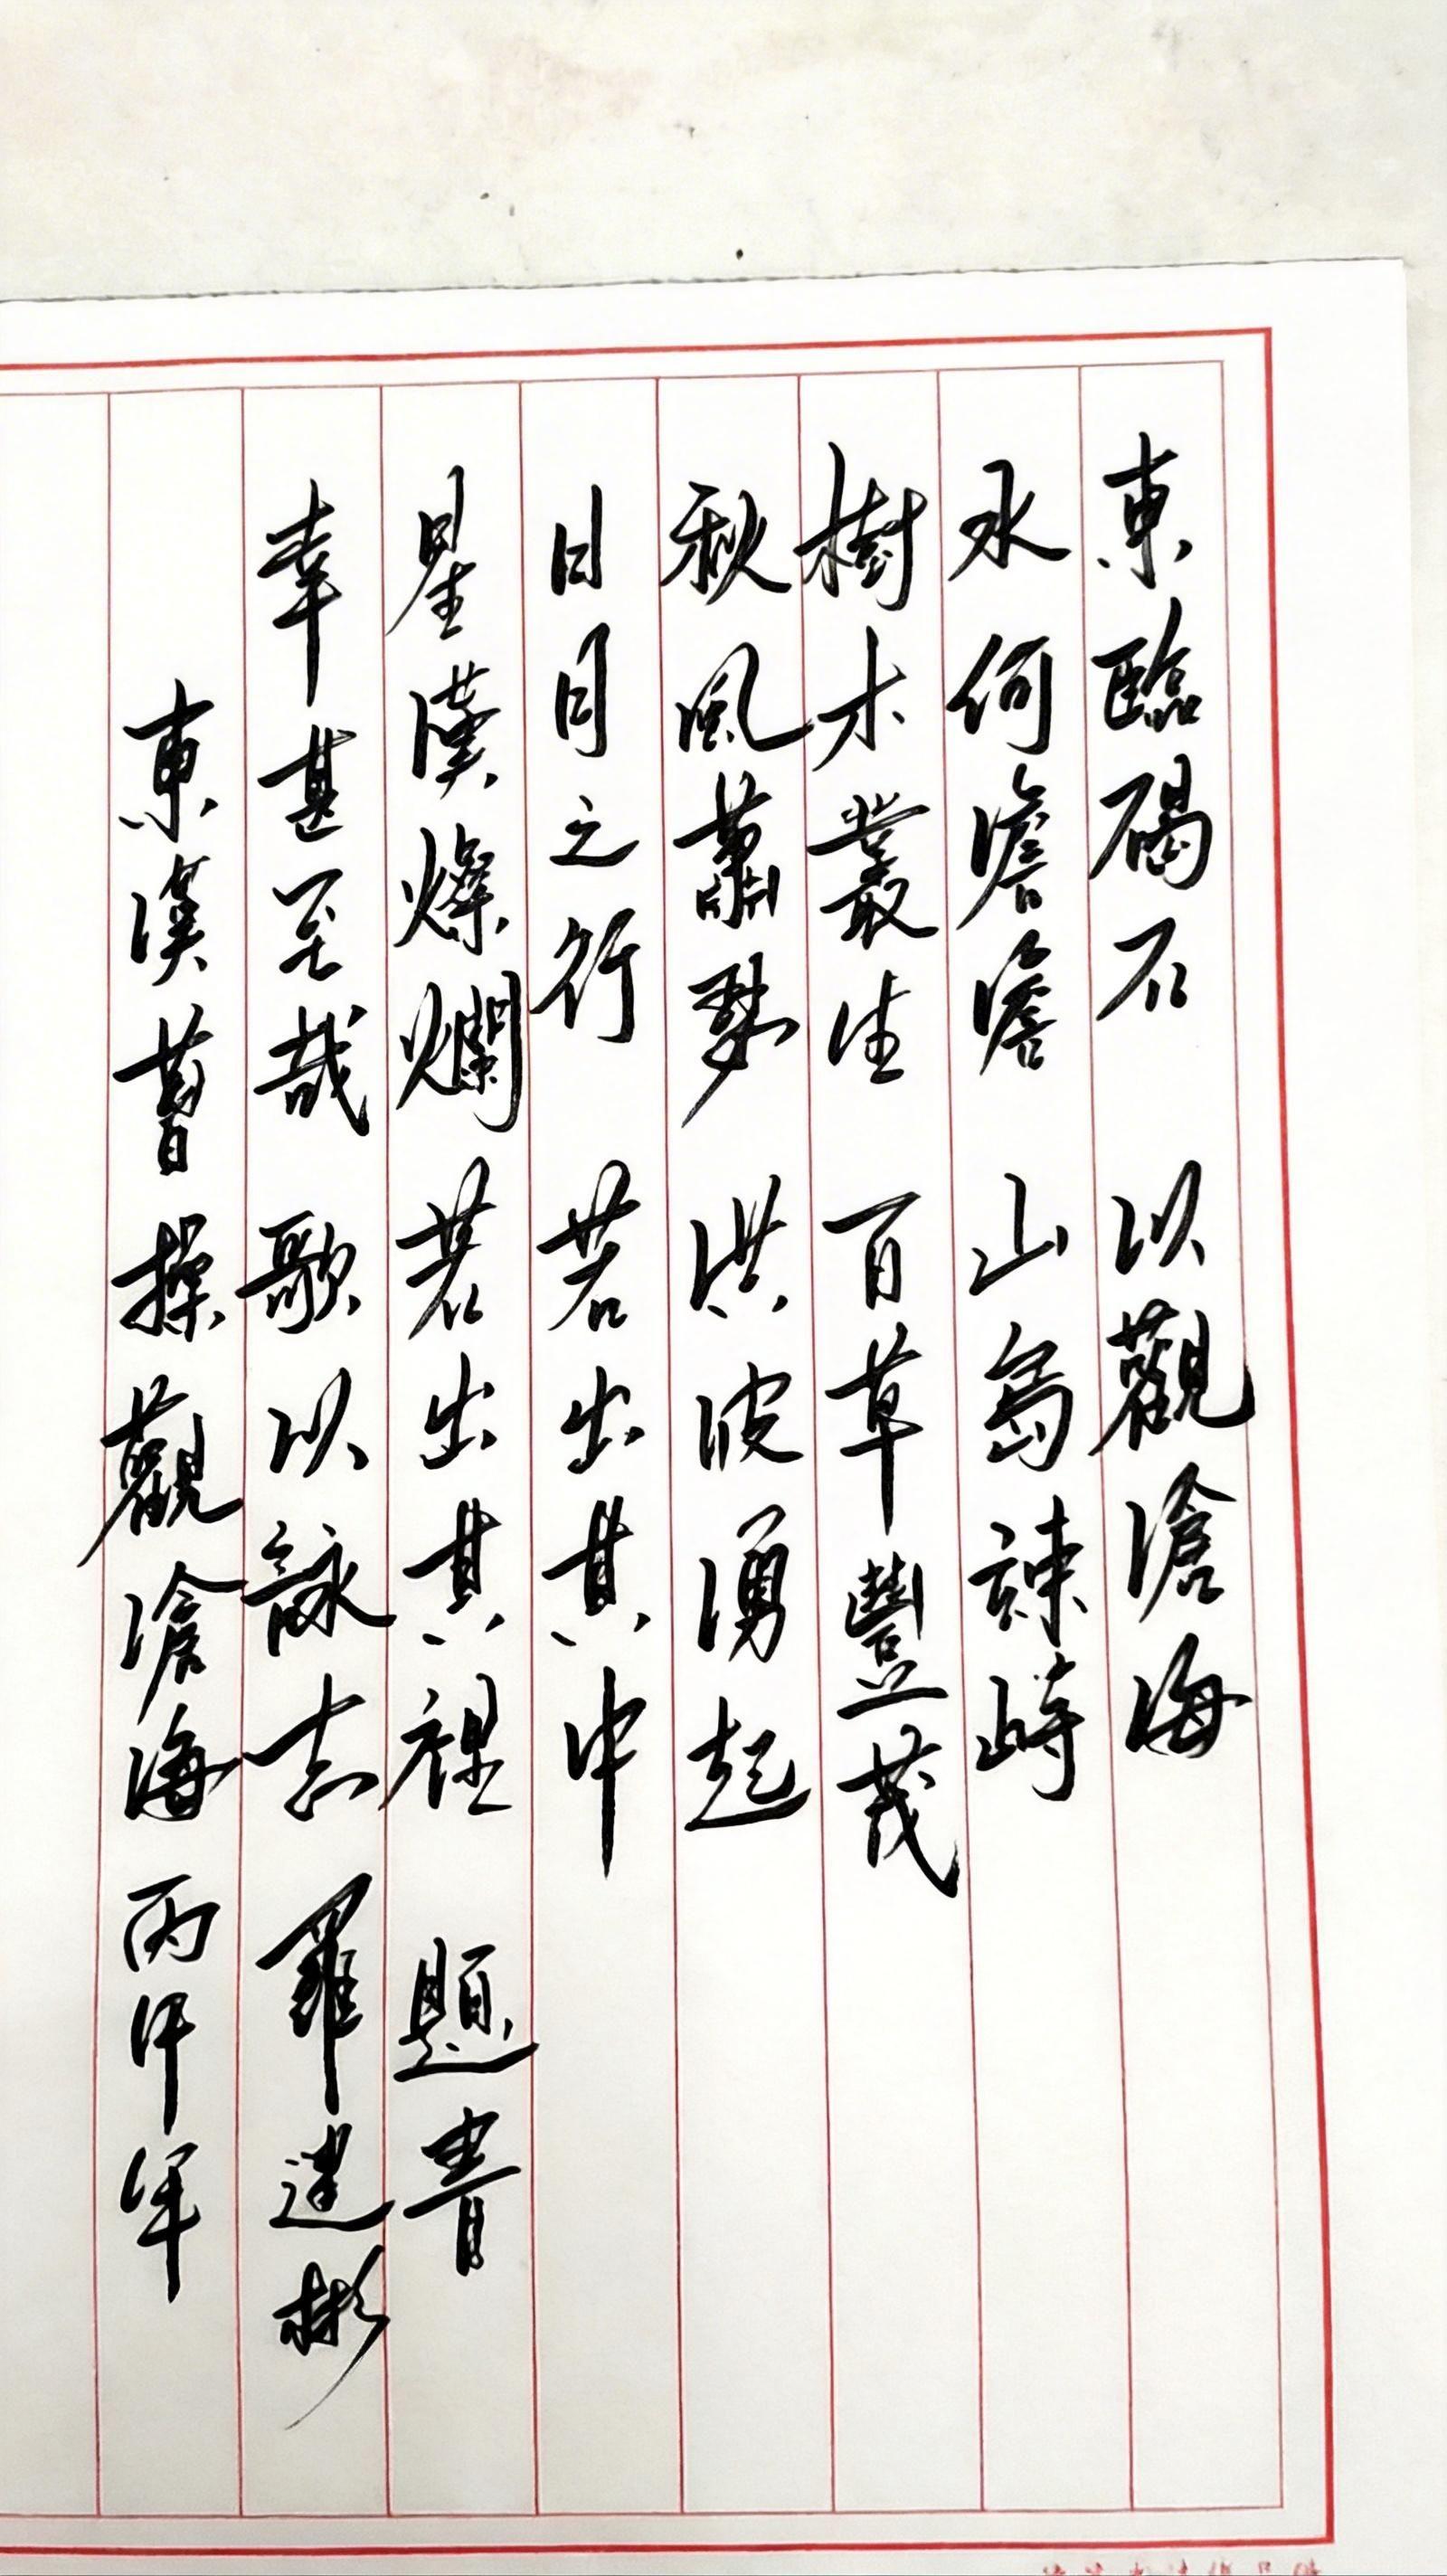 東臨碣石 以觀滄海
水何澹澹 山島竦峙
樹木叢生 百草豐茂
秋風蕭瑟 洪波湧起
日月之行 若出其中
星漢燦爛 若出其裡 題書
幸甚至哉 歌以詠志 羅建彬
東漢曹操觀滄海 丙申年